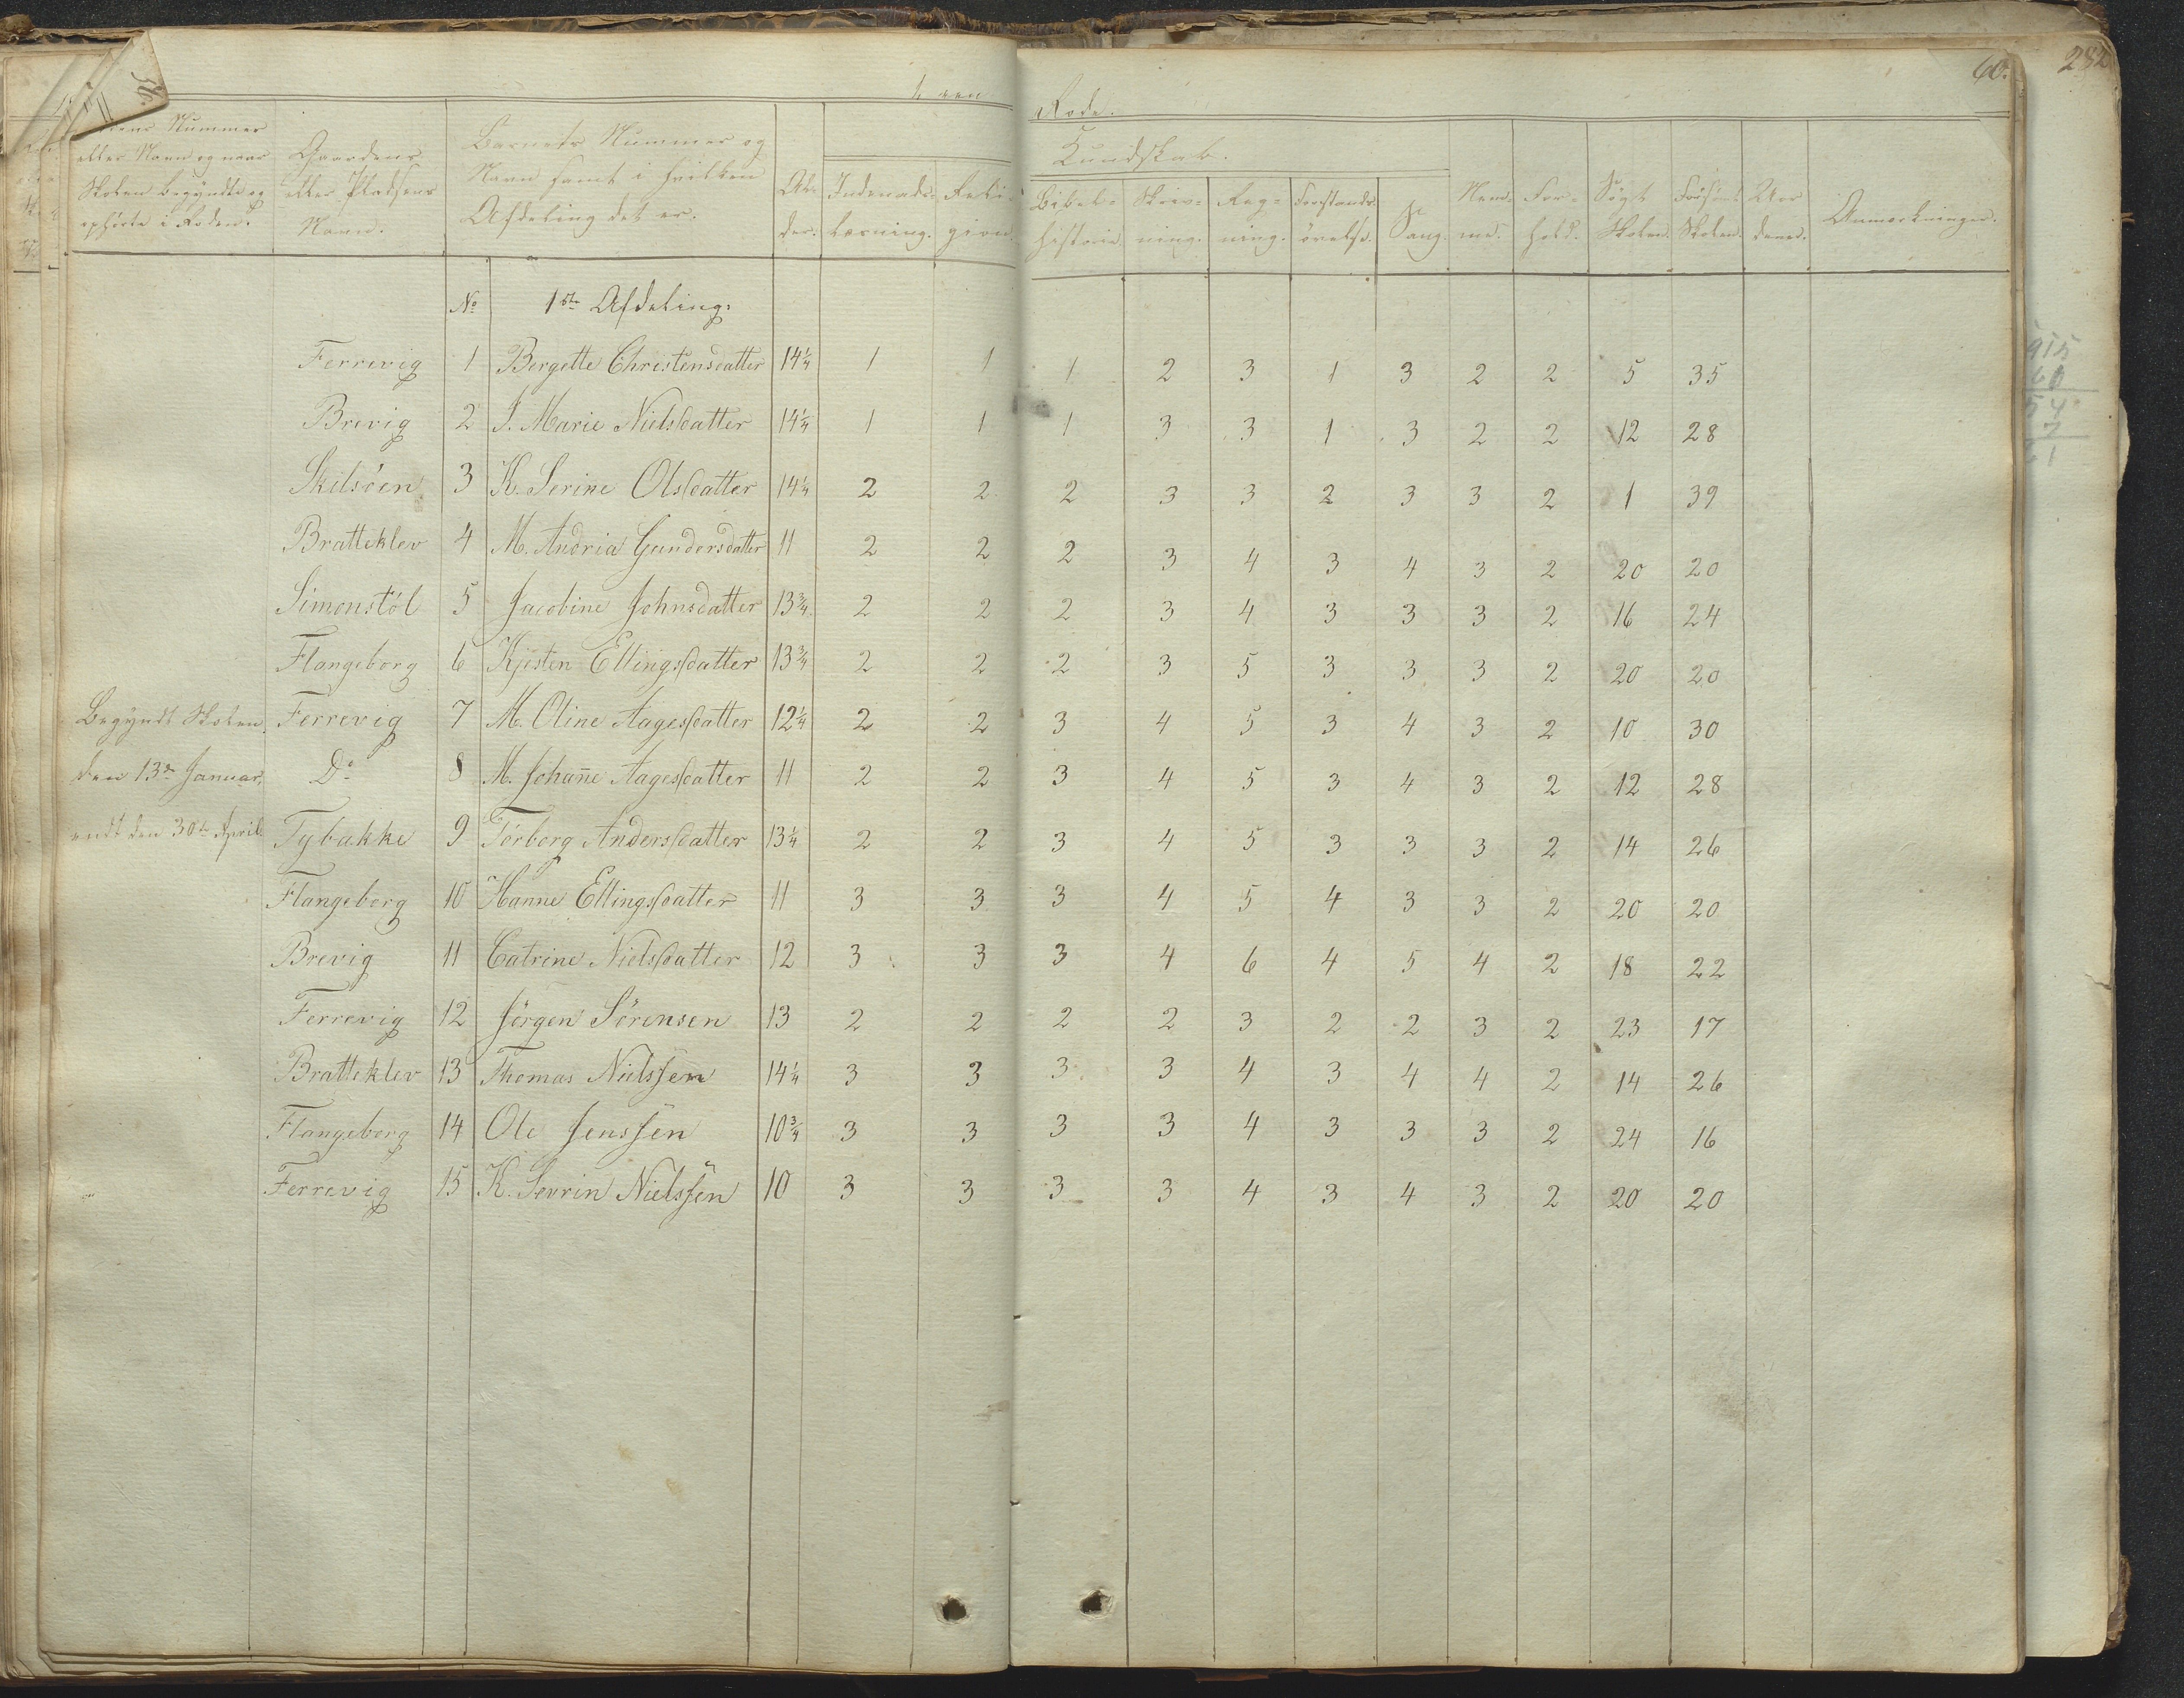 60. 282
4 den Rode.
Rodens Nummer eller Navn og naar Skolen begyndte og ophörte i Roden. | Gaardens eller Pladsens Navn. | Barnets Nummer og Navn samt i hvilken Afdeling det er. | Alder. | Indenadslæsning. | Religion. | Kundskab. Bibelhistorie. | Skrivning. | Regning. | Forstandsövelse. | Sang. | Nemme. | Forhold. | Sögt Skolen. | Forsömt Skolen. | Ordener. | Anmærkninger.
No 1ste Afdeling:
Ferrevig 1 Bergette Christensdatter 14¼ 1 1 1 2 3 1 3 2 2 5 35
Brevig 2 J. Marie Nielsdatter 14¼ 1 1 1 3 3 1 3 2 2 12 28
Skilsöen 3 K. Serine Olsdatter 14¼ 2 2 2 3 3 2 3 3 2 1 39
Bratteklev 4 M. Andria Gundersdatter 11 2 2 2 3 4 3 4 3 2 20 20
Simonstöl 5 Jacobine Johnsdatter 13¾ 2 2 2 3 4 3 3 3 2 16 24
Flangeborg 6 Kjesten Ellingsdatter 13¾ 2 2 2 3 5 3 3 3 2 20 20
Begyndt Skolen Ferrevig 7 M. Oline Aagesdatter 12¼ 2 2 3 4 5 3 4 3 2 10 30
den 13de Januar, Do 8 M. Johan̄e Aagesdatter 11 2 2 3 4 5 3 4 3 2 12 28
endt den 30te April Tybakke 9 Törborg Andersdatter 13¼ 2 2 3 4 5 3 3 3 2 14 26
Flangeborg 10 Hanne Ellingsdatter 11 3 3 3 4 5 4 3 3 2 20 20
Brevig 11 Catrine Nielsdatter 12 3 3 3 4 6 4 5 4 2 18 22
Ferrevig 12 Jörgen Sörensen 13 2 2 2 2 3 2 2 3 2 23 17
Bratteklev 13 Thomas Nielssen 14¼ 3 3 3 3 4 3 4 4 2 14 26
Flangeborg 14 Ole Jenssen 10¾ 3 3 3 3 4 3 3 3 2 24 16
Ferrevig 15 K. Sevrin Nielssen 10 3 3 3 3 4 3 4 3 2 20 20